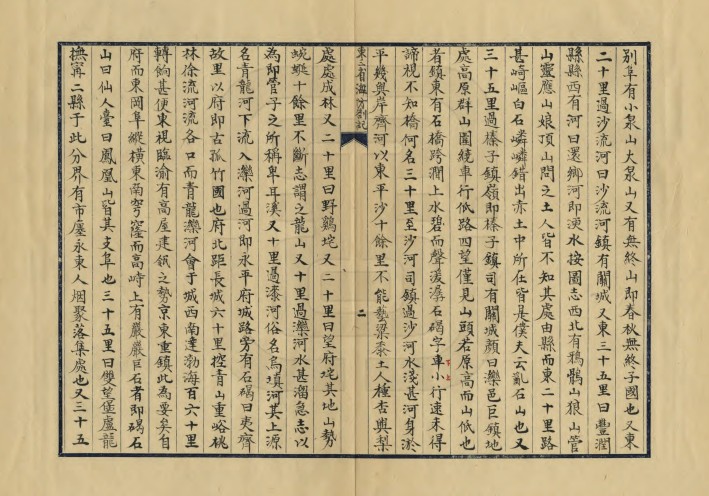 別阜有小泉山大泉山又有無終山即春秋無終子國也又東
二十里過沙流河曰沙流河鎮有關城又東三十五里曰豐潤
縣縣西有河曰還鄉河即浭水按圖志西北有鴉鶻山狼山管
山靈應山娘頂山問之土人皆不知其處由縣而東二十里路
甚崎嶇白石嶙嶙錯出赤土中所在皆是僕夫云亂石山也又
三十五里過榛子鎮嶺即榛子鎮司有關城顏曰灤邑巨鎮地
處高原群山圍繞車行低路四望僅見山頭若原高而山低也
者鎮東有石橋跨澗上水碧而聲湲潺石碣字車小行速未得
諦視不知橋何名三十里至沙河司鎮過沙河水淺甚河身淤
平幾與岸齊河以東平沙十餘里不能藝粱黍土人種杏與梨
東三省海防劄記
二
處處成林又二十里曰野鷄坨又二十里曰望府坨其地山勢
蜿蜒十餘里不斷志謂之龍山又十里過灤河水甚溜急志以
為即管子之所稱卑耳溪又十里過漆河俗名烏填河其上源
名青龍河下流入灤河過河即永平府城路旁有石碣曰夷齊
故里以府即古孤竹國也府北距長城六十里控青山重峪桃
林徐流河流各口而青龍灤河會于城西南達渤海百六十里
轉餉甚便東視臨渝有高屋建瓴之勢京東重鎮此為要矣自
府而東岡阜縱橫東南穹窿而高峙上有嚴嚴巨石者即碣石
山曰仙人臺曰鳳凰山皆其支阜也三十五里曰雙望堡盧龍
撫甯二縣于此分界有市廛永東人烟聚落集處也又三十五